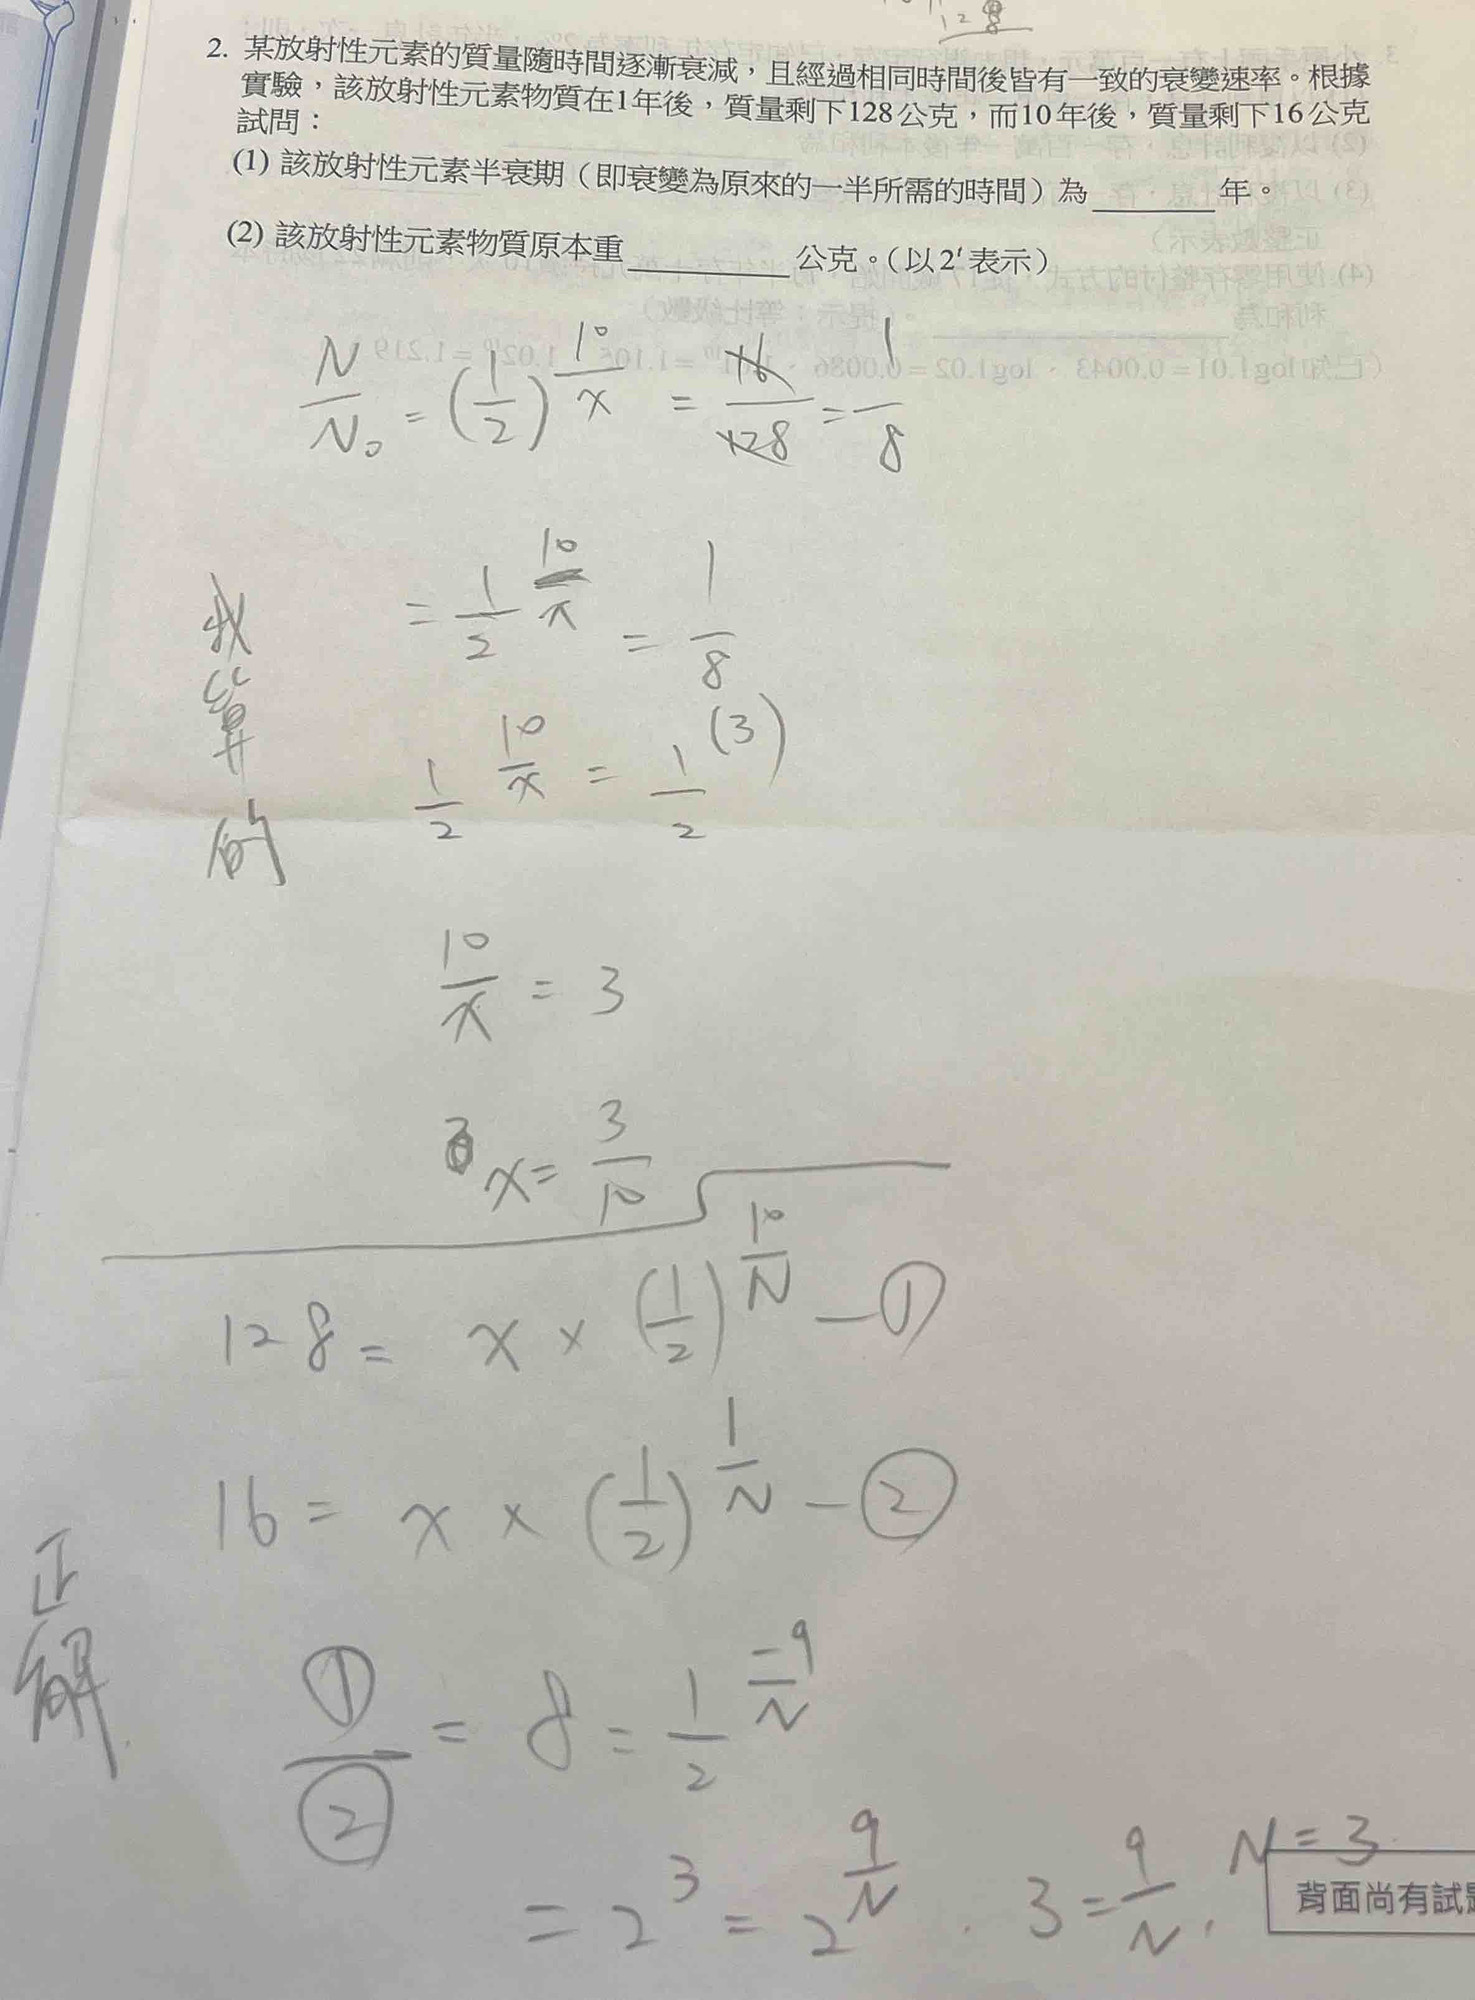 128
2. 某放射性元素的質量隨時間逐漸衰減，且經過相同時間後皆有一致的衰變速率。根據
實驗，該放射性元素物質在1年後，質量剩下128公克，而10年後，質量剩下16公克
試問：
(1) 該放射性元素半衰期（即衰變為原來的一半所需的時間）為______年。
(2) 該放射性元素物質原本重______公克。（以2ᵗ表示）
N/N₀ = (1/2)^(10/x) = 16/128 = 1/8
= 1/2^(10/x) = 1/8
我算的
1/2^(10/x) = 1/2^(3)
10/x = 3
x = 3/10
128 = x × (1/2)^(10/N) — ①
16 = x × (1/2)^(1/N) — ②
正解
①/② = 8 = 1/2^(-9/N)
= 2^3 = 2^(9/N) . 3 = 9/N , N = 3
背面尚有試